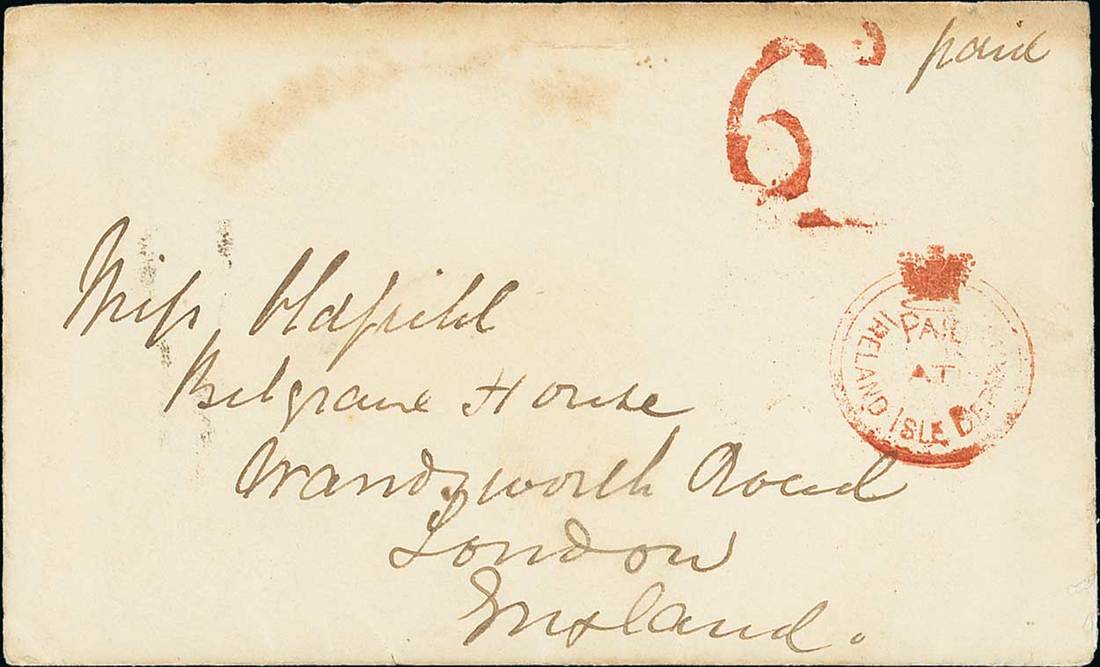 6d
paid
PAID
AT
IRELAND ISLE BERMUDA
Miss Oldfield
Belgrave House
Wandsworth Road
London
England.